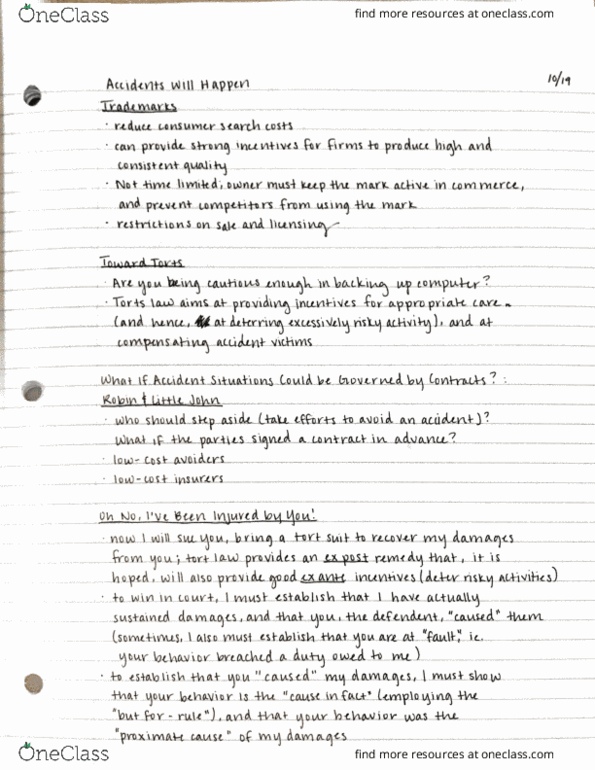 OneClass
find more resources at oneclass.com
Accidents Will Happen
10/19
Trademarks
· reduce consumer search costs
· can provide strong incentives for firms to produce high and
consistent quality
· Not time limited; owner must keep the mark active in commerce,
and prevent competitors from using the mark
· restrictions on sale and licensing
Toward Torts
· Are you being cautious enough in backing up computer?
· Torts law aims at providing incentives for appropriate care
(and hence, at deterring excessively risky activity), and at
compensating accident victims
What If Accident Situations Could be Governed by Contracts? :
Robin & Little John
· who should step aside (take efforts to avoid an accident)?
What if the parties signed a contract in advance?
· low-cost avoiders
· low-cost insurers
Oh No, I've Been Injured by You!
· now I will sue you, bring a tort suit to recover my damages
from you; tort law provides an ex post remedy that, it is
hoped, will also provide good ex ante incentives (deter risky activities)
· to win in court, I must establish that I have actually
sustained damages, and that you, the defendent, "caused" them
(sometimes, I also must establish that you are at "fault," ie.
your behavior breached a duty owed to me)
· to establish that you "caused" my damages, I must show
that your behavior is the "cause in fact" (employing the
"but for - rule"), and that your behavior was the
"proximate cause" of my damages
OneClass
find more resources at oneclass.com